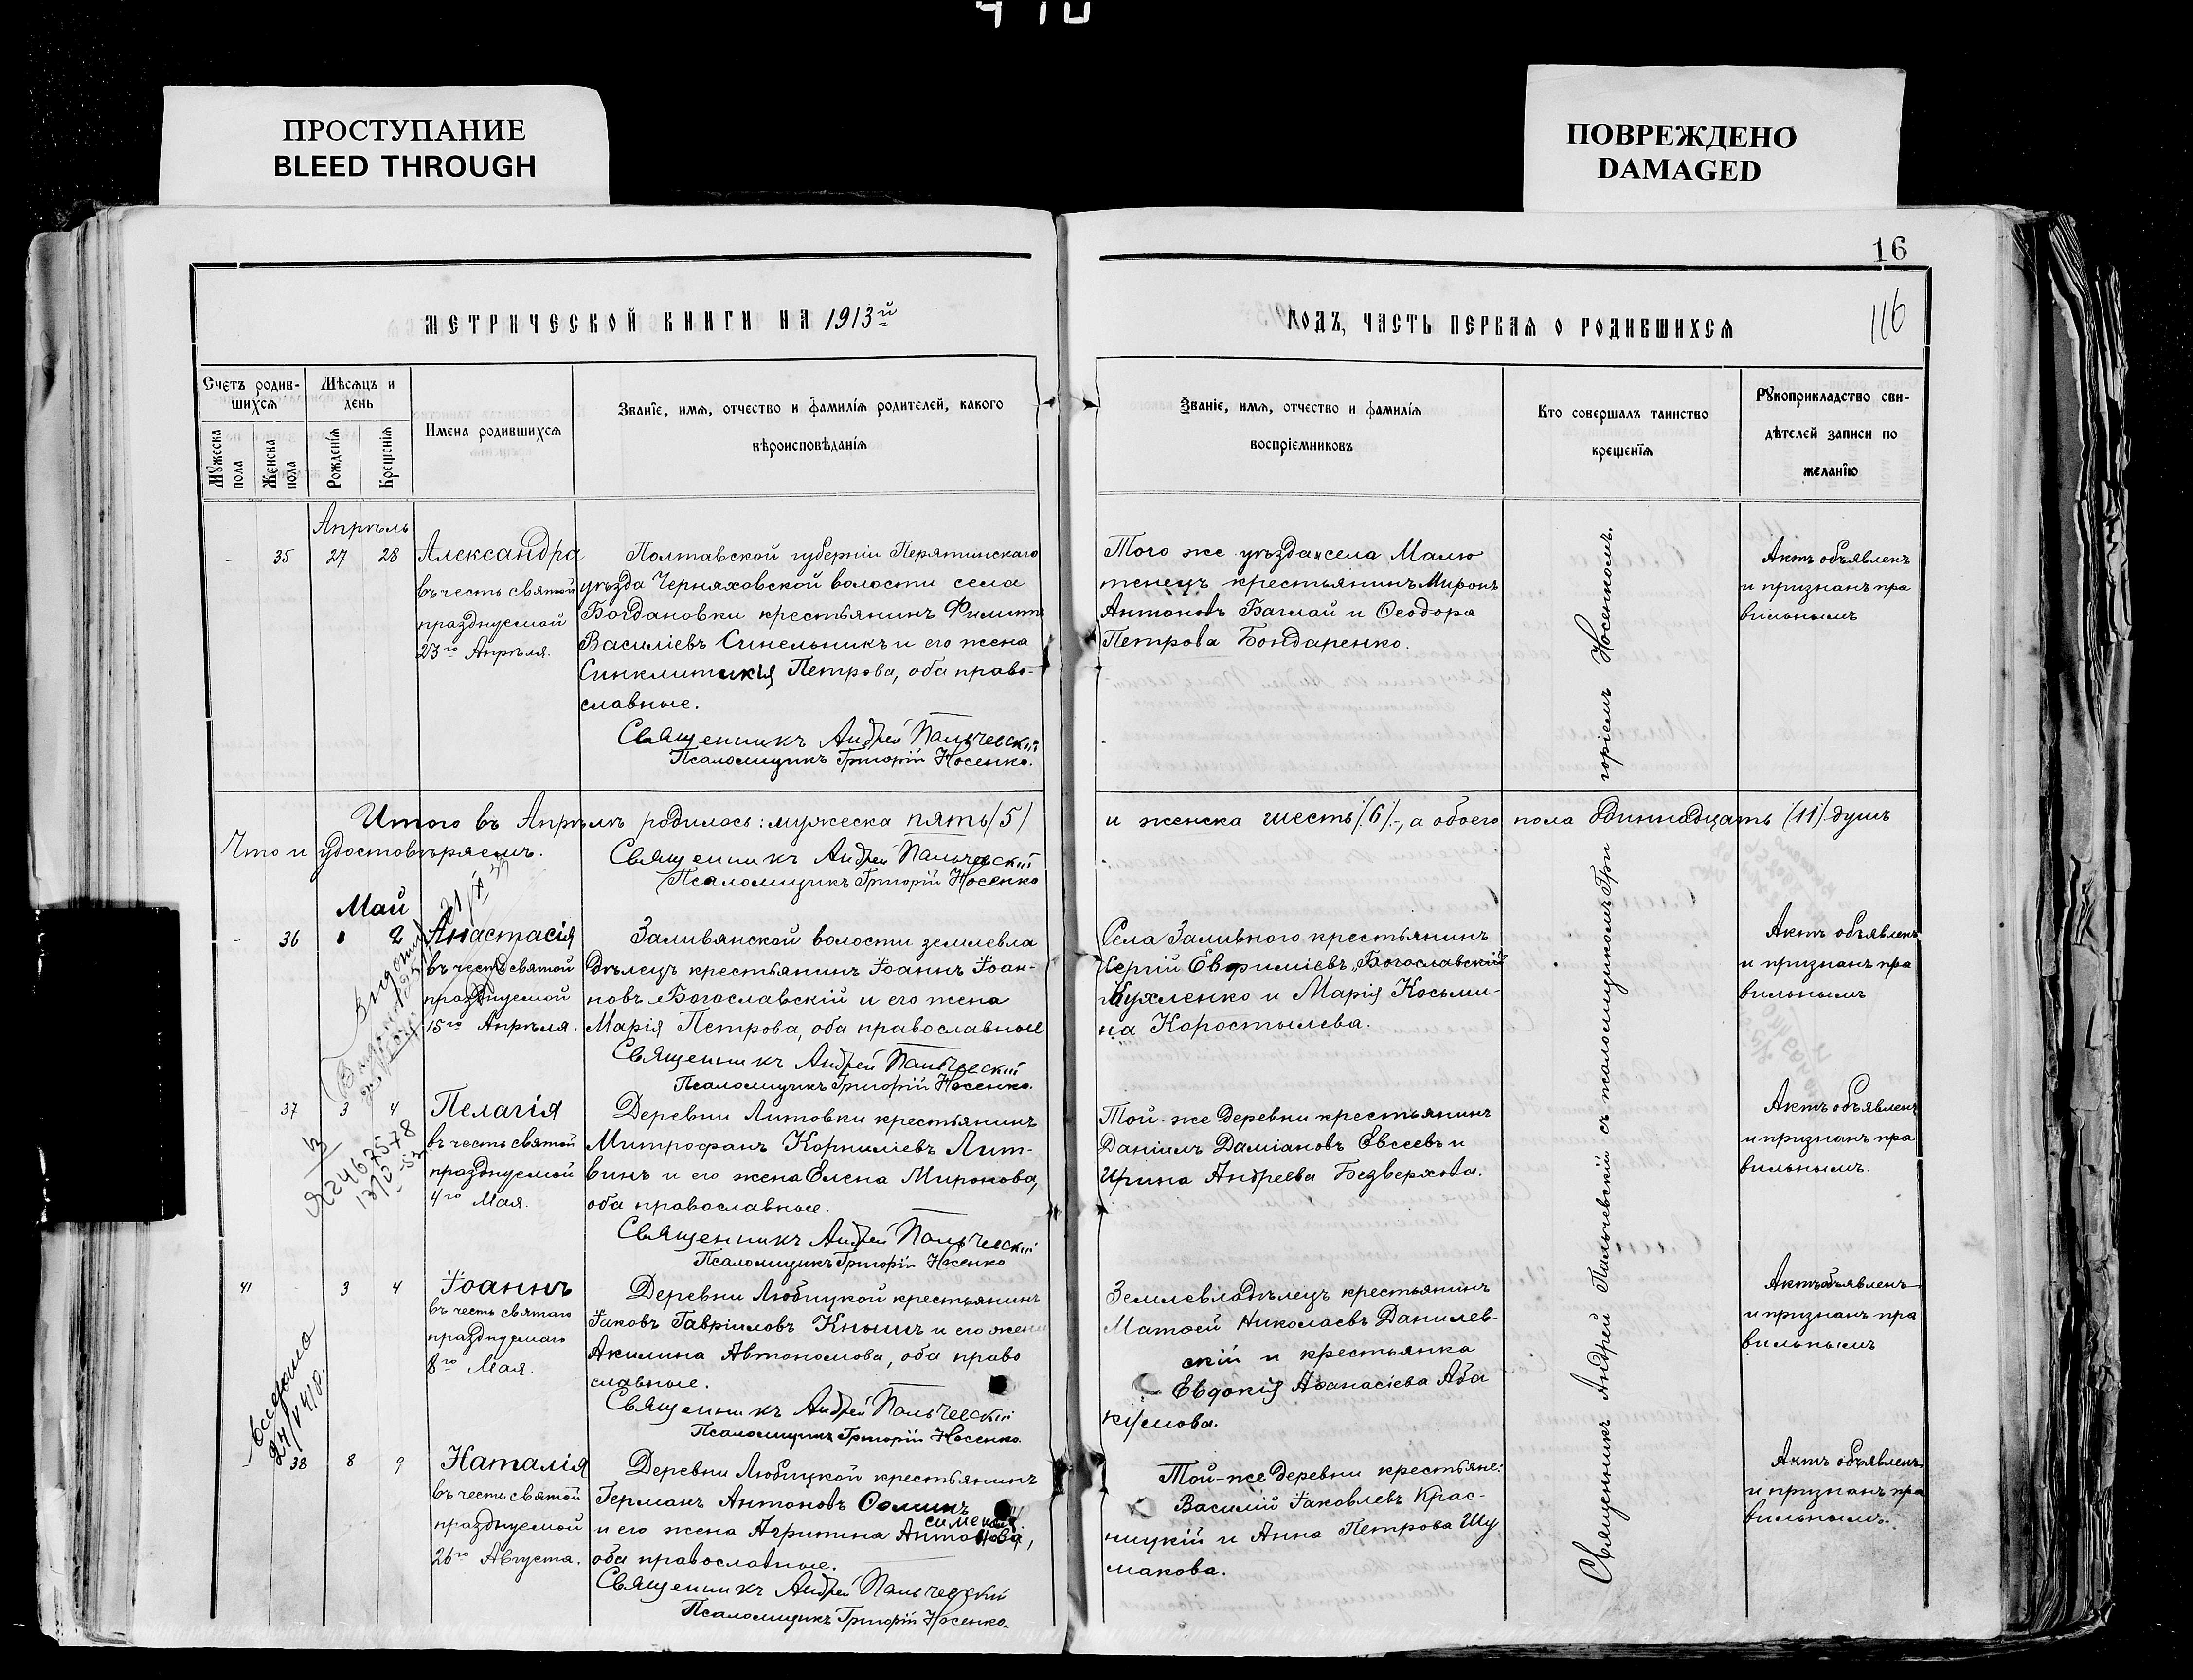 410
ПРОСТУПАНИЕ
BLEED THROUGH
ПОВРЕЖДЕНО
DAMAGED
16
116
МЕТРИЧЕСКОЙ КНИГИ НА 1913й
ГОДЪ, ЧАСТЬ ПЕРВАѦ О РОДИВШИХСѦ
Счетъ родив-
шихсѧ
Мѣсѧцъ и
день
Мужеска
пола
Женска
пола
Рожденїѧ
Крещенїѧ
Имена родившихсѧ
Званїе, имѧ, отчество и фамилїѧ родителей, какого
вѣроисповѣданїѧ
Званїе, имѧ, отчество и фамилїѧ
воспрїемниковъ
Кто совершалъ таинство
крещенїѧ
Рукоприкладство сви-
дѣтелей записи по
желанїю
Апрѣль
- 35 27 28
Александра
въ честь святой
празднуемой
23го Апрѣля.
Полтавской губерніи Перятинскаго
уѣзда Черняховской волости села
Богдановки крестьянинъ Филиппъ
Василіевъ Синельникъ и его жена
Синклитикія Петрова, оба право-
славные.
Священникъ Андрей Пальчевскій
Псаломщикъ Григорій Носенко.
Того же уѣзда села Малю
тенецъ крестьянинъ Миронъ
Антоновъ Баглай и Ѳеодора
Петрова Бондаренко.
Актъ объявленъ
и признанъ пра
вильнымъ
Итого въ Апрѣлѣ родилось: мужеска пять /5/
и женска шесть /.6/.-, а обоего пола Одиннадцать (11). душъ
Что и удостовѣряемъ.
Священникъ Андрей Пальчевскій
Псаломщикъ Григорій Носенко
Май
- 36 1 2
Анастасія
въ честь святой
празднуемой
15го Апрѣля.
Заливянской волости землевла
дѣлецъ крестьянинъ Іоаннъ Іоан-
новъ Богославскій и его жена
Марія Петрова, оба православные
Священникъ Андрей Пальчевскій
Псаломщикъ Григорій Носенко.
Села Заливного крестьянинъ
Сергій Евфиміевъ Богославскій
Кухленко и Марія Косьми-
на Коростылева.
Актъ объявленъ
и признанъ пра
вильнымъ
- 37 3 4
Пелагія
въ честь святой
празднуемой
4го Мая.
Деревни Литовки крестьянинъ
Митрофанъ Корниліевъ Лит-
винъ и его жена Елена Миронова,
оба православные.
Священникъ Андрей Пальчевскій
Псаломщикъ Григорій Носенко
Той же деревни крестьянинъ
Даніилъ Даміановъ Евсеевъ и
Ирина Андреева Безверхова.
Актъ объявленъ
и признанъ пра
вильнымъ.
41 - 3 4
Іоаннъ
въ честь святаго
празднуемаго
8го Мая.
Деревни Любицкой крестьянинъ
Іаковъ Гавріиловъ Кнышъ и его жена
Акилина Автономова, оба право
славные.
Священникъ Андрей Пальчевскій
Псаломщикъ Григорій Носенко.
Землевладѣлецъ крестьянинъ
Матѳей Николаевъ Данилев-
скій и крестьянка
Евдокія Аѳанасіева Аба
кумова.
Актъ объявленъ
и признанъ пра
вильнымъ
- 38 8 9
Наталія
въ честь святой
празднуемой
26го Августа.
Деревни Любицкой крестьянинъ
Германъ Антоновъ Ѳоминъ
и его жена Агрипина Антонова,
оба православные.
Священникъ Андрей Пальчевскій
Псаломщикъ Григорій Носенко.
Той-же деревни крестьяне:
Василій Іаковлевъ Крас-
ницкій и Анна Петрова Шу
макова.
Актъ объявленъ
и признанъ пра
вильнымъ.
Священникъ Андрей Пальчевскій съ псаломщикомъ Гри горіемъ Носенкомъ.